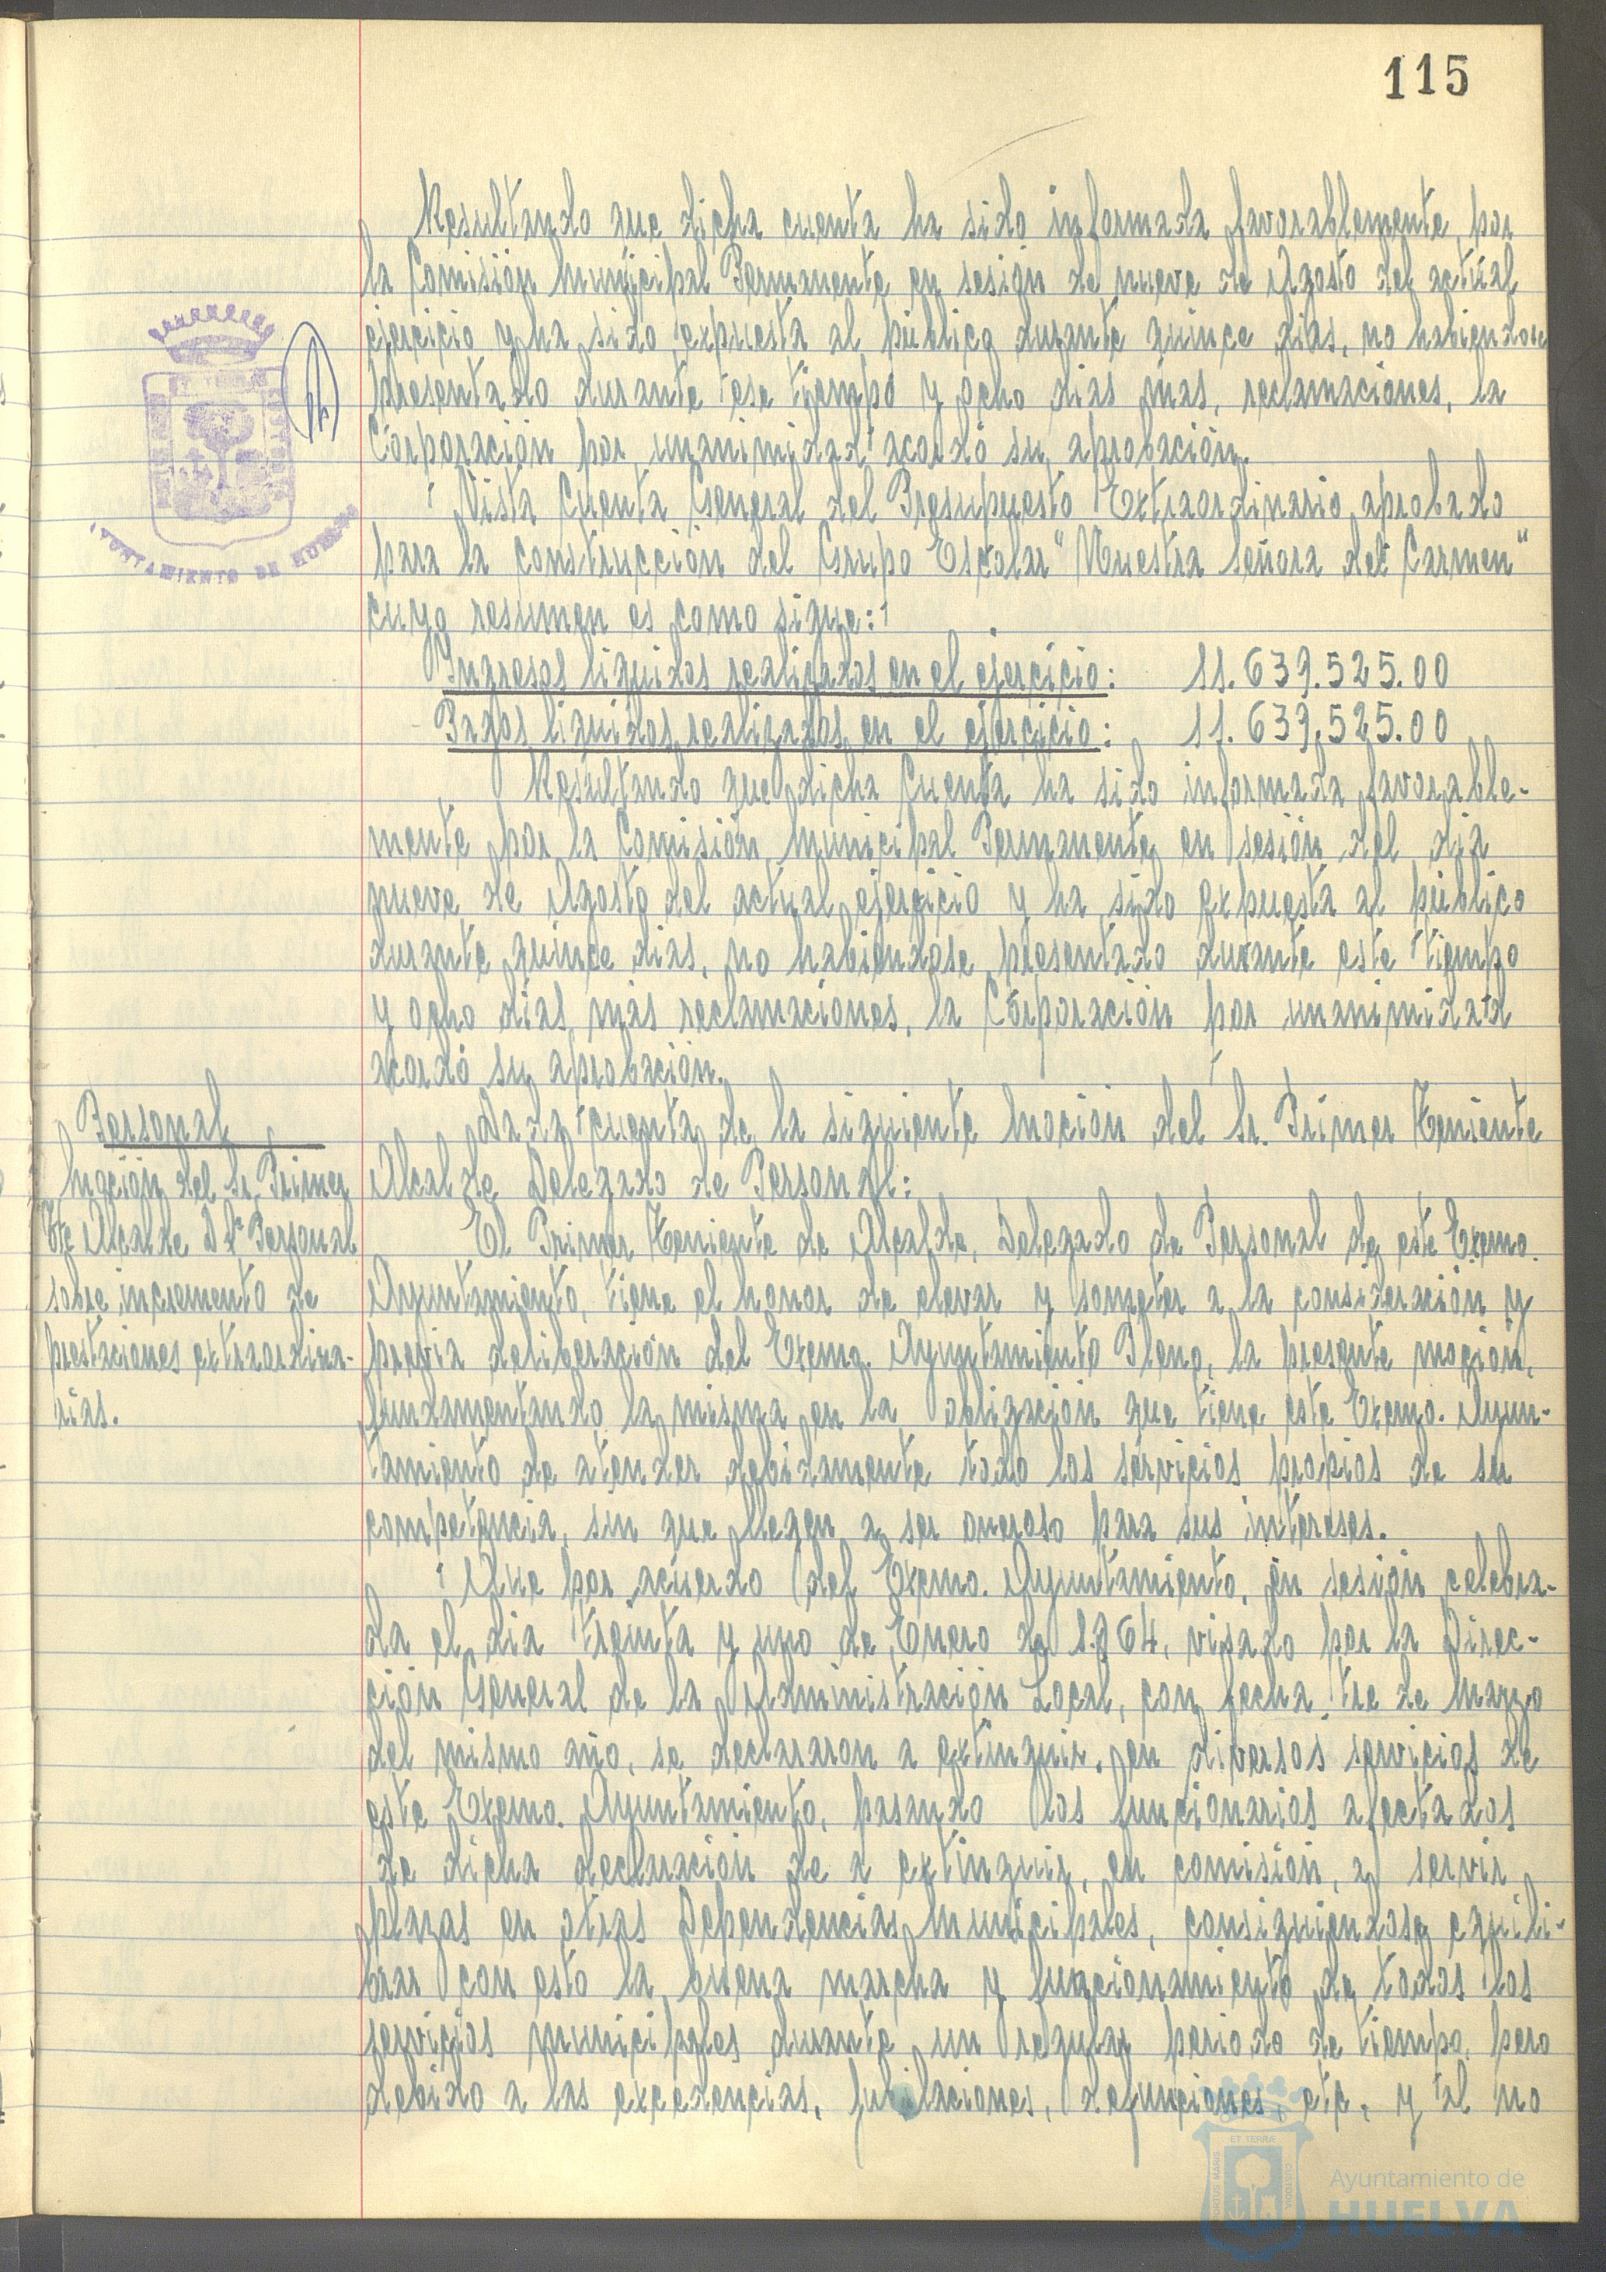 115
Resultando que dicha cuenta ha sido informada favorablemente por
la Comisión Municipal Permanente en sesión de nueve de Agosto del actual
ejercicio y ha sido expuesta al público durante quince dias, no habiendose
presentado durante ese tiempo y ocho dias mas, reclamaciones, la
Corporación por unanimidad acordó su aprobación.
Vista Cuenta General del Presupuesto Extraordinario aprobado
para la construcción del Grupo Escolar "Nuestra Señora del Carmen"
cuyo resumen es como sigue:
Ingresos liquidos realizados en el ejercicio: 11.639.525.00
Pagos liquidos realizados en el ejercicio: 11.639.525.00
Resultando que dicha Cuenta ha sido informada favorable-
mente por la Comisión Municipal Permanente en sesión del dia
nueve de Agosto del actual ejercicio y ha sido expuesta al público
durante quince dias, no habiendose presentado durante este tiempo
y ocho dias mas reclamaciones, la Corporación por unanimidad
acordó su aprobación.
Personal
Moción del Sr. Primer
Tte Alcalde D. Personal
sobre incremento de
prestaciones extraordina-
rias.
Dada cuenta de la siguiente Moción del Sr. Primer Teniente
Alcalde Delegado de Personal:
El Primer Teniente de Alcalde, Delegado de Personal de este Excmo.
Ayuntamiento, tiene el honor de elevar y someter a la consideración y
previa deliberación del Excmo. Ayuntamiento Pleno, la presente moción,
fundamentando la misma en la obligación que tiene este Excmo. Ayun-
tamiento de atender debidamente todo los servicios propios de su
competencia, sin que llegen a ser oneroso para sus intereses.
Que por acuerdo del Excmo. Ayuntamiento, en sesión celebra-
da el dia treinta y uno de Enero de 1.964, visado por la Direc-
ción General de la Administración Local, con fecha tre de Marzo
del mismo año, se declararon a extinguir, en diversos servicios de
este Excmo. Ayuntamiento, pasando los funcionarios afectados
de dicha declaración de a extinguir, en comisión, a servir
plazas en otras Dependencias Municipales, consiguiendose equili-
brar con esto la buena marcha y funcionamiento de todos los
servicios municipales durante un regular periodo de tiempo, pero
debido a las excedencias, jubilaciones, defunciones, etc, y al no
AYUNTAMIENTO DE HUELVA
PORTUS MARIS ET TERRAE CUSTODIA
Ayuntamiento de
HUELVA